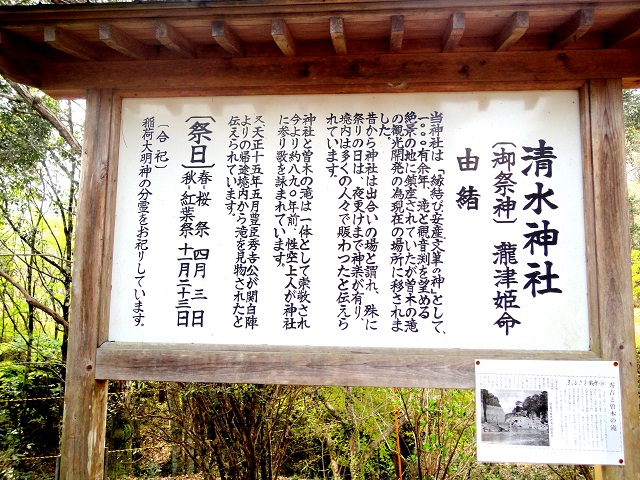 清水神社
〔御祭神〕瀧津姫命
由緒
当神社は「縁結び安産文筆の神」として、
一〇〇〇有余年、滝と観音渕を望める
絶景の地に鎮座されていたが曽木の滝
の観光開発の為現在の場所に移されま
した。
昔から神社は出合いの場と謂れ、殊に
祭りの日は、夜更けまで神楽が有り、
境内は多くの人々で賑わつたと伝えら
れています。
神社と曽木の滝は一体として崇敬され
今より約八九〇年前、性空上人が神社
に参り歌を詠まれています。
又天正十五年五月豊臣秀吉公が関白陣
よりの帰途境内から滝を見物されたと
伝えられています。
〔祭日〕春・桜祭 四月三日
秋・紅葉祭 十一月二十三日
〔合祀〕
稲荷大明神の分霊をお祀りしています。
秀吉と曽木の滝